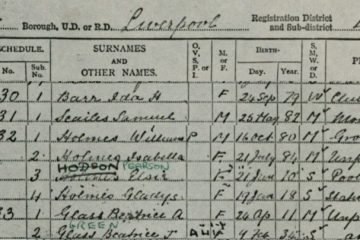 Borough, U.D. or R.D. Liverpool Registration District
and Sub-district
SCHEDULE. SURNAMES AND OTHER NAMES. O., V., S., P. or I. M. or F. BIRTH— S. M. W. or D.
No. Sub. No. Day. Year.
30 1 Barr Ida H F 24 Sep 79 W
31 1 Scailes Samuel M 25 May 82 M
32 1 Holmes William P M 16 Oct 80 M
2 Holmes Isabella F 21 July 84 M
HODSON PEARSON
3 Holmes Elsie F 21 Jun 10 S
4 Holmes Gladys F 19 Jan 18 S
33 1 Glass Beatrice A F 24 Ap 11 M
GREEN
2 Glass Beatrice J F 9 Feb 34 S